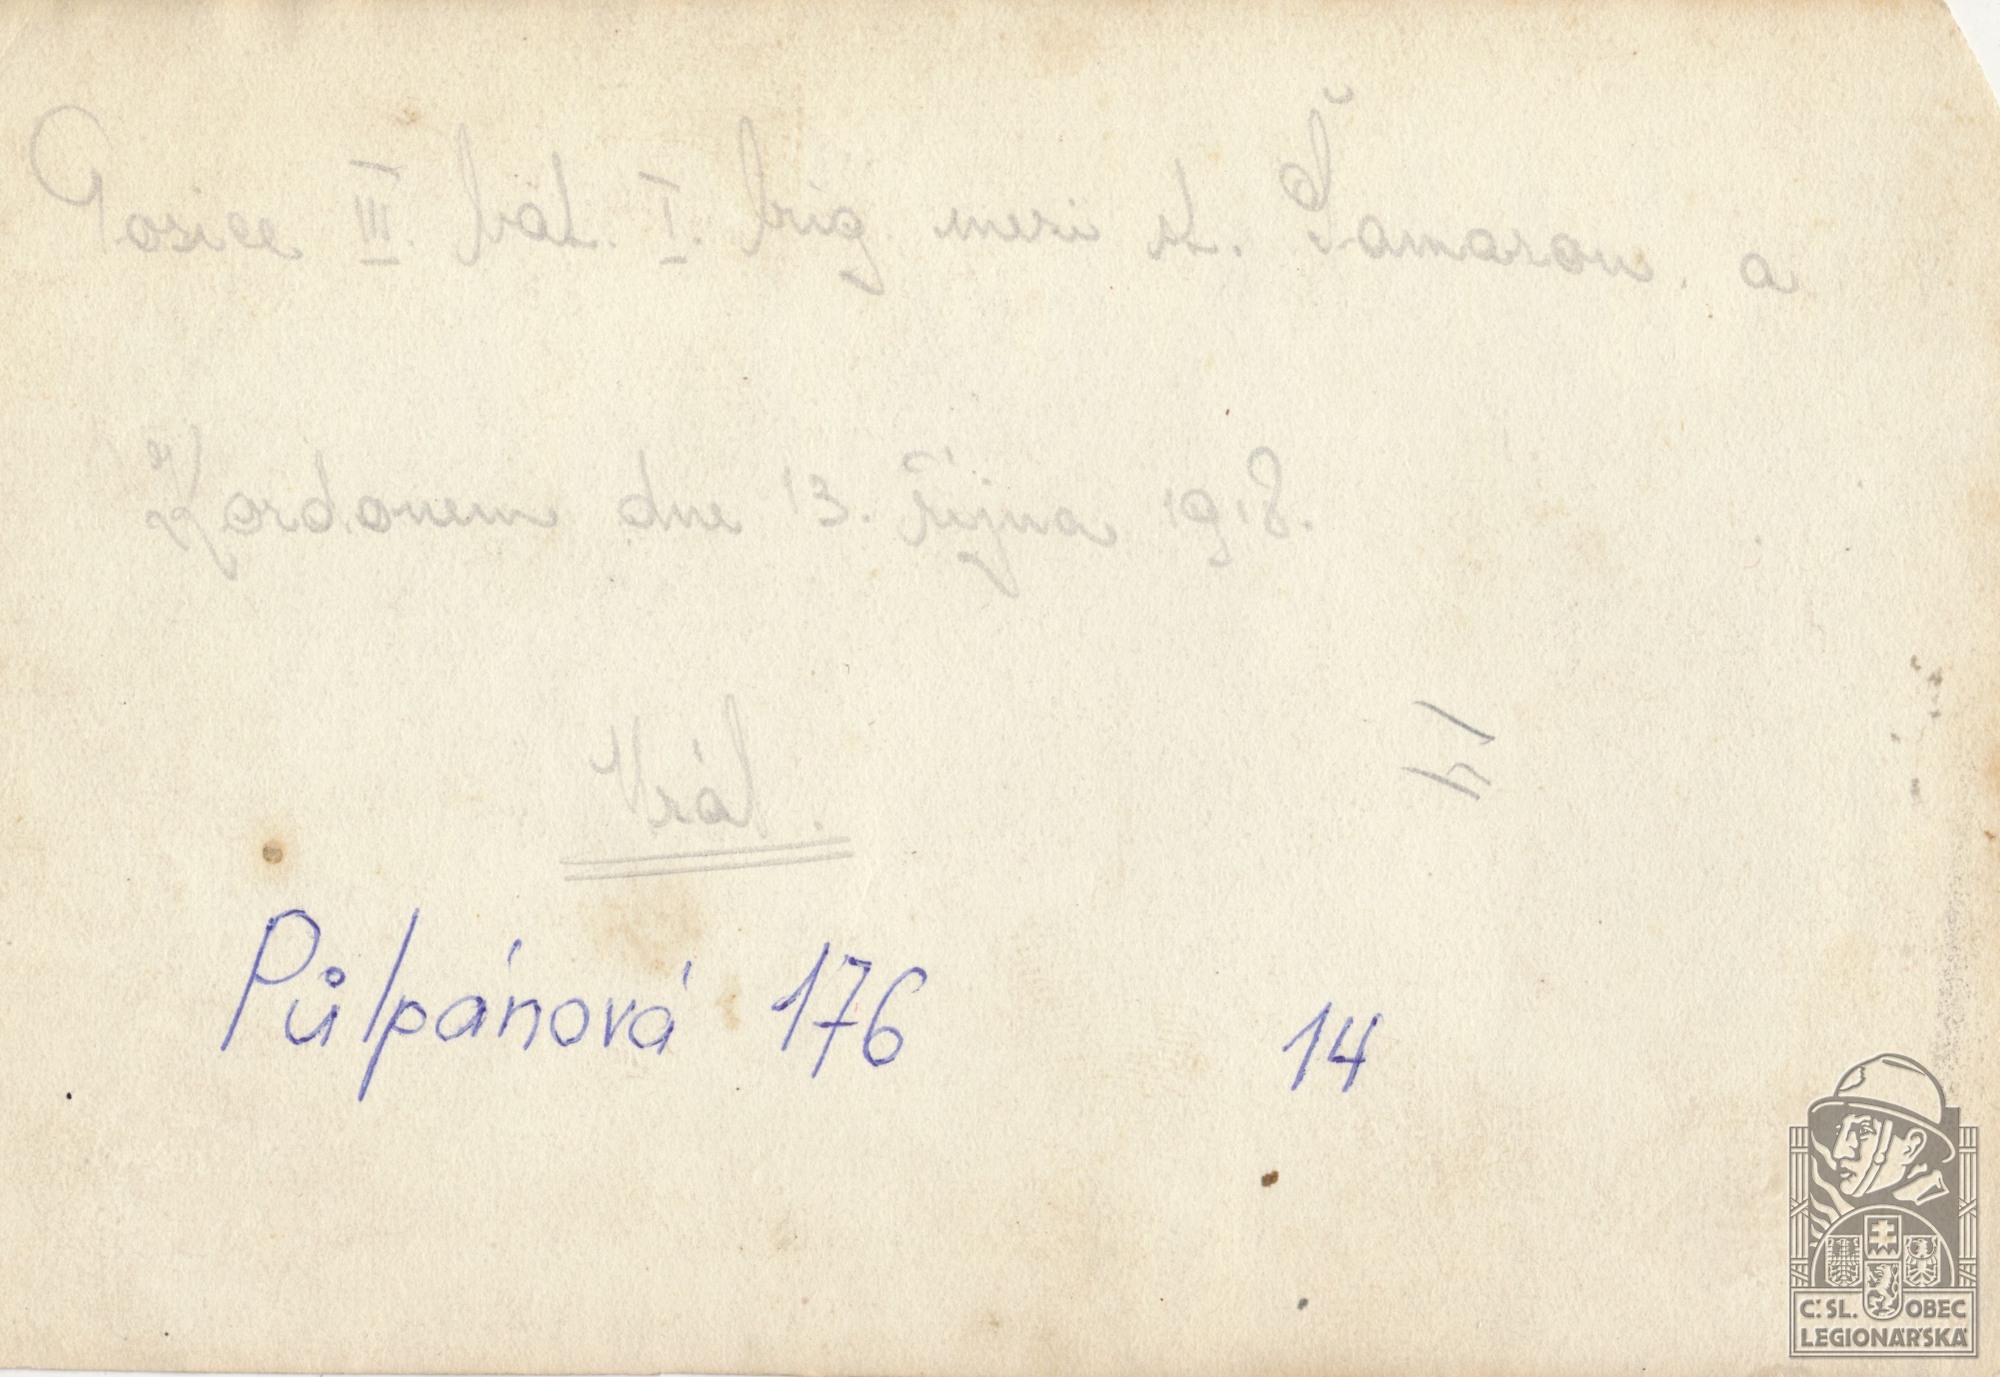 Posice III. bat. I. brig. mezi st. Šamarou a
Kordonem dne 13. října 1918.
Král.
14
Půlpánová 176 14
Č.SL. OBEC
LEGIONÁŘSKÁ